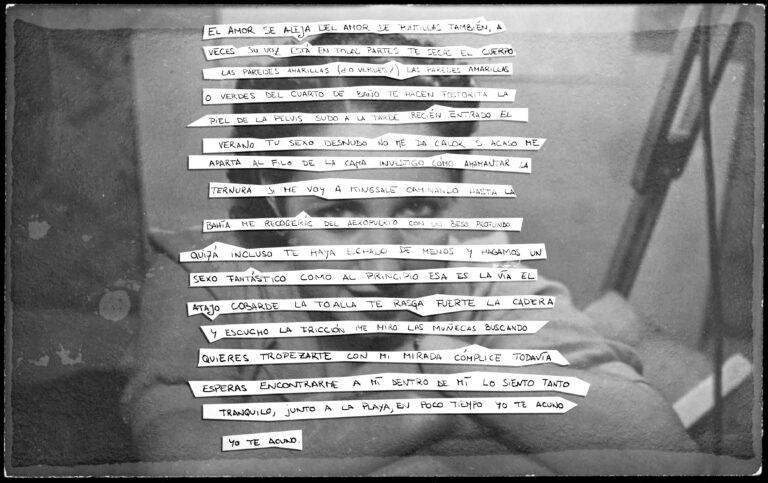 EL AMOR SE ALEJA DEL AMOR DE PUNTILLAS TAMBIÉN, A
VECES SU VOZ ESTÁ EN TODAS PARTES TE SECAS EL CUERPO
LAS PAREDES AMARILLAS (¿O VERDES?) LAS PAREDES AMARILLAS
O VERDES DEL CUARTO DE BAÑO TE HACEN FOSFORITA LA
PIEL DE LA PELVIS SUDO A LA TARDE RECIÉN ENTRADO EL
VERANO TU SEXO DESNUDO NO ME DA CALOR SI ACASO ME
APARTA AL FILO DE LA CAMA INVESTIGO CÓMO AMAMANTAR LA
TERNURA SI ME VOY A KINGSALE CAMINANDO HASTA LA
BAHÍA ME RECOGERÁS DEL AEROPUERTO CON UN BESO PROFUNDO
QUIZÁ INCLUSO TE HAYA ECHADO DE MENOS Y HAGAMOS UN
SEXO FANTÁSTICO COMO AL PRINCIPIO ESA ES LA VÍA EL
ATAJO COBARDE LA TOALLA TE RASGA FUERTE LA CADERA
Y ESCUCHO LA FRICCIÓN ME MIRO LAS MUÑECAS BUSCANDO
QUIERES TROPEZARTE CON MI MIRADA CÓMPLICE TODAVÍA
ESPERAS ENCONTRARME A MÍ DENTRO DE MÍ LO SIENTO TANTO
TRANQUILO, JUNTO A LA PLAYA, EN POCO TIEMPO YO TE ACUNO
YO TE ACUNO.